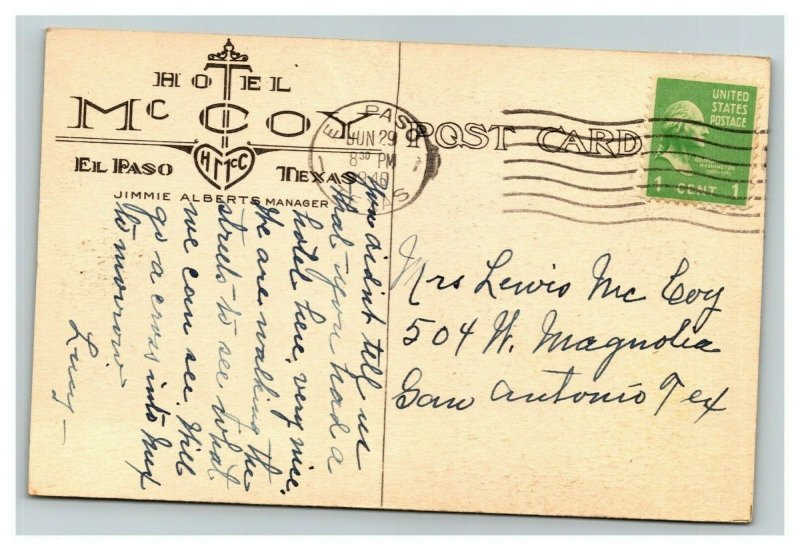 HOTEL
Mc COY
H McC
EL PASO TEXAS
JIMMIE ALBERTS MANAGER
EL PASO
JUN 29
8 30 PM
1940
TEXAS
POST CARD
UNITED
STATES
POSTAGE
GEORGE
WASHINGTON
1 CENT 1
You didn't tell us
that you had a
hotel here, very nice.
We are walking the
struts to see what
we can see. Will
go a cross into Mex
to morrow
Lucy
Mrs Lewis Mc Coy
504 W. Magnolia
San Antonio Tex